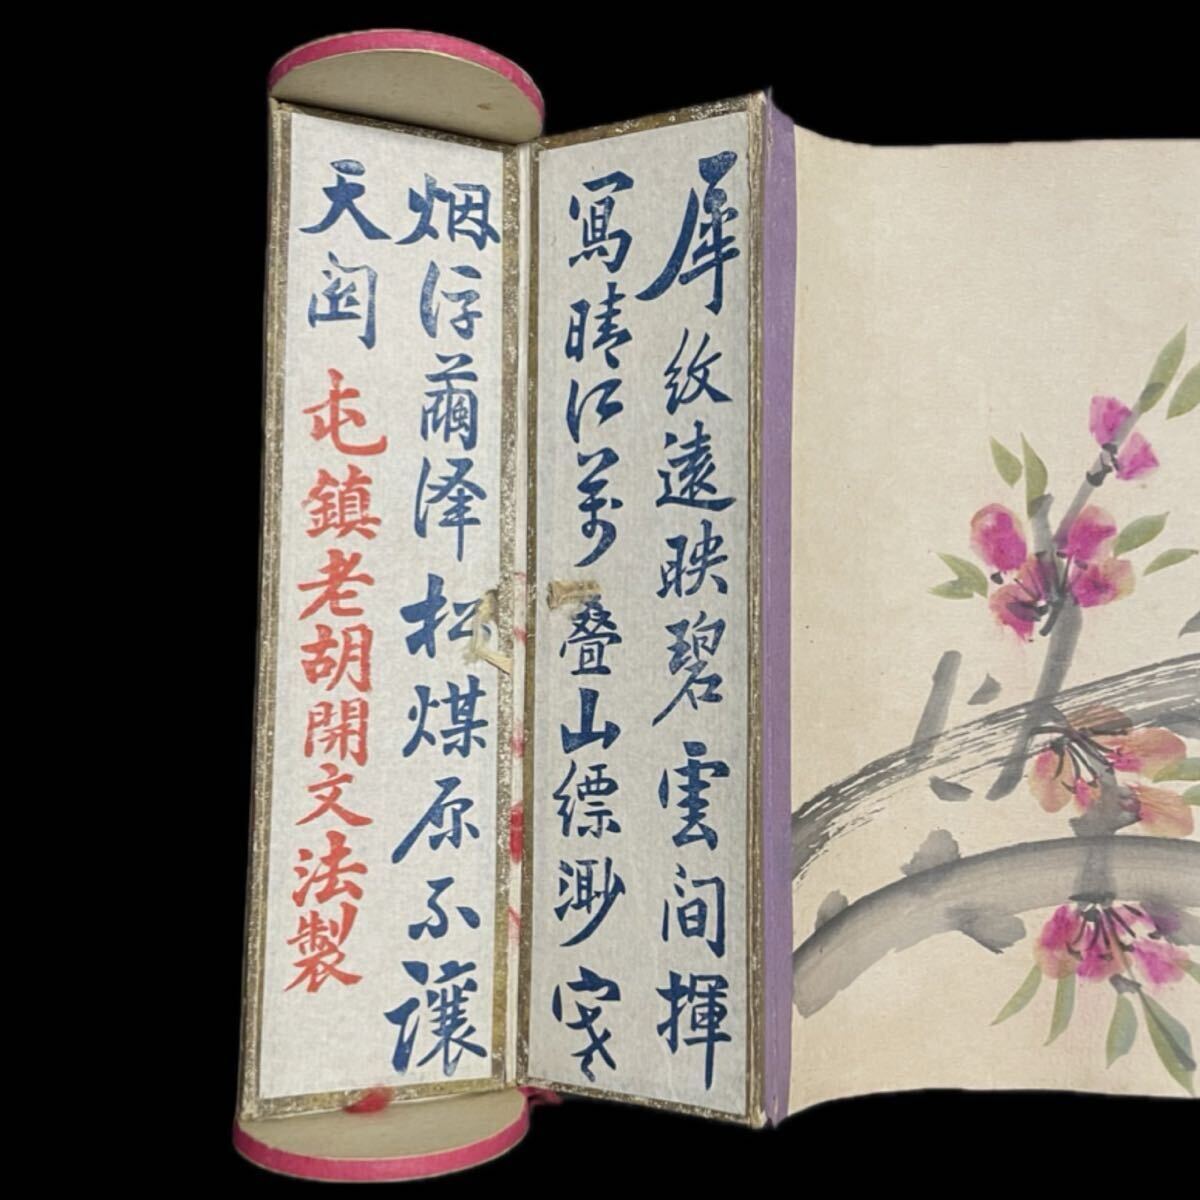 犀紋遠映碧雲间揮
寫晴江萬叠山缥渺𡧯
烟浮繭泽松煤原不讓
天閎屯鎮老胡開文法製